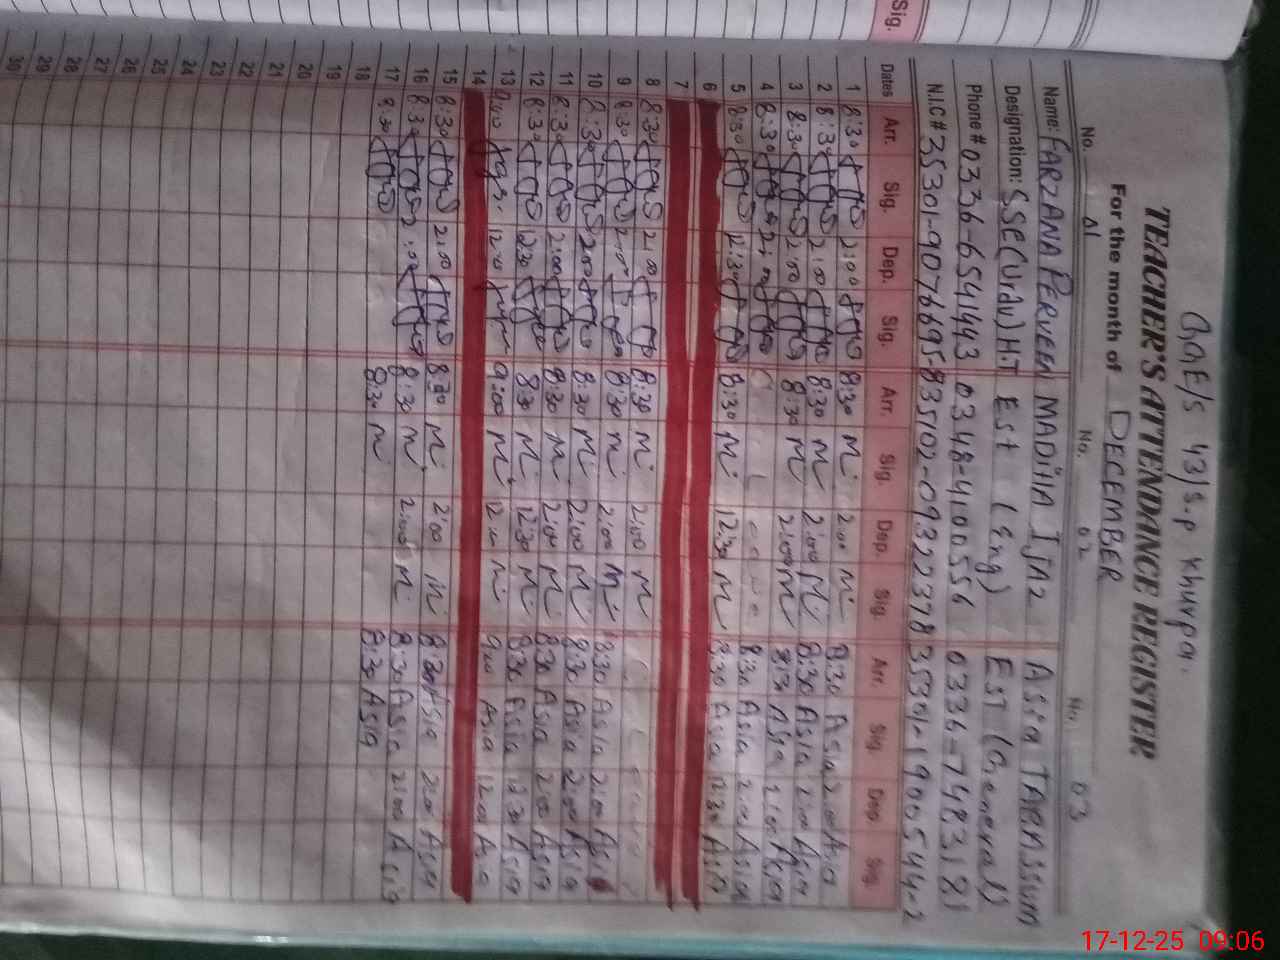 Sig.
43/S.P Khurpa.
TEACHER'S ATTENDANCE REGISTER
For the month of DECEMBER
No. 01 No. 02 No. 03
Name: FARZANA PERVEEN MADIHA IJAZ Asia TABASSUM
Designation: SSE(Urdu)HT EST (Eng) EST (General)
Phone # 0336-6541443 0348-4100556 0336-7483181
N.I.C # 35301-9076695-8 35102-0932237-8 35301-1900544-2
Dates Arr. Sig. Dep. Sig. Arr. Sig. Dep. Sig. Arr. Sig. Dep. Sig.
1 8:30 2:00 8:30 M 2:00 M 8:30 Asia 2:00 Asia
2 8:30 2:00 8:30 M 2:00 M 8:30 Asia 2:00 Asia
3 8:30 2:00 8:30 M 2:00 M 8:30 Asia 2:00 Asia
4 8:30 2:00 8:30 Asia 2:00 Asia
5 8:30 12:30 8:30 M 12:30 M 8:30 Asia 12:30 Asia
6
7
8 8:30 2:00 8:30 M 2:00 M
9 8:30 2:00 8:30 M 2:00 M 8:30 Asia 2:00 Asia
10 8:30 2:00 8:30 M 2:00 M 8:30 Asia 2:00 Asia
11 8:30 2:00 8:30 M 2:00 M 8:30 Asia 2:00 Asia
12 8:30 12:30 8:30 M 12:30 M 8:30 Asia 12:30 Asia
13 9:00 12:00 9:00 M 12:00 M 9:00 Asia 12:00 Asia
14
15 8:30 2:00 8:30 M 2:00 M 8:30 Asia 2:00 Asia
16 8:30 2:00 8:30 M 2:00 M 8:30 Asia 2:00 Asia
17 8:30 8:30 M 8:30 Asia
18
19
20
21
22
23
24
25
26
27
28
29
30
17-12-25 09:06